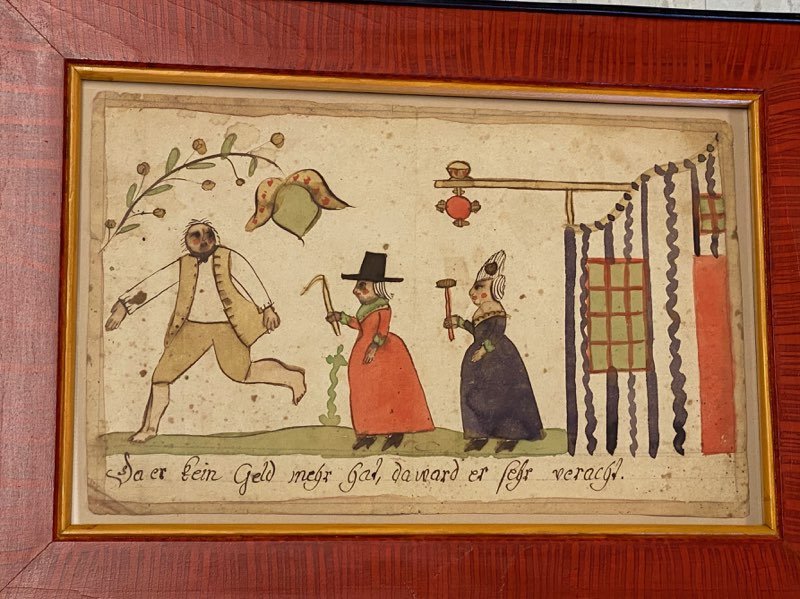 Da er kein Geld mehr hat, da ward er sehr veracht.